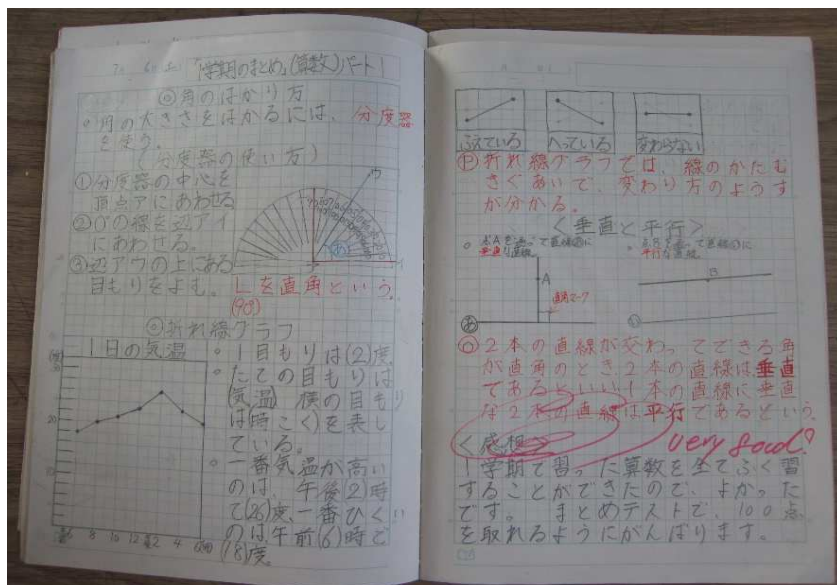 「1学期のまとめ」(算数)パート1
◎角のはかり方
○角の大きさをはかるには、分度器
を使う。
(分度器の使い方)
①分度器の中心を
頂点アにあわせる
②0°の線を辺アイ
にあわせる。
③辺アウの上にある
目もりをよむ。
∟を直角という。
(90°)
◎折れ線グラフ
1日の気温
○1目もりは(2)度
○たての目もりは
(気温)横の目もり
は(時こく)を表し
ている。
○一番気温が高い
のは、午後(2)時
で(26)度、一番ひくい
のは、午前(6)時で
(18)度。
20
8 10 12 2 4
ふえている
へっている
変わらない
折れ線グラフでは、線のかたむ
きぐあいで、変わり方のようす
が分かる。
<垂直と平行>
垂直な直線
平行な直線
A
B
直角マーク
あ
2本の直線が交わってできる角
が直角のとき、2本の直線は垂直
であるといい、1本の直線に垂直
な2本の直線は平行であるという。
<感想>
very good!
1学期で習った算数を全てふく習
することができたので、よかった
です。まとめテストで、100点
を取れるようにがんばります。